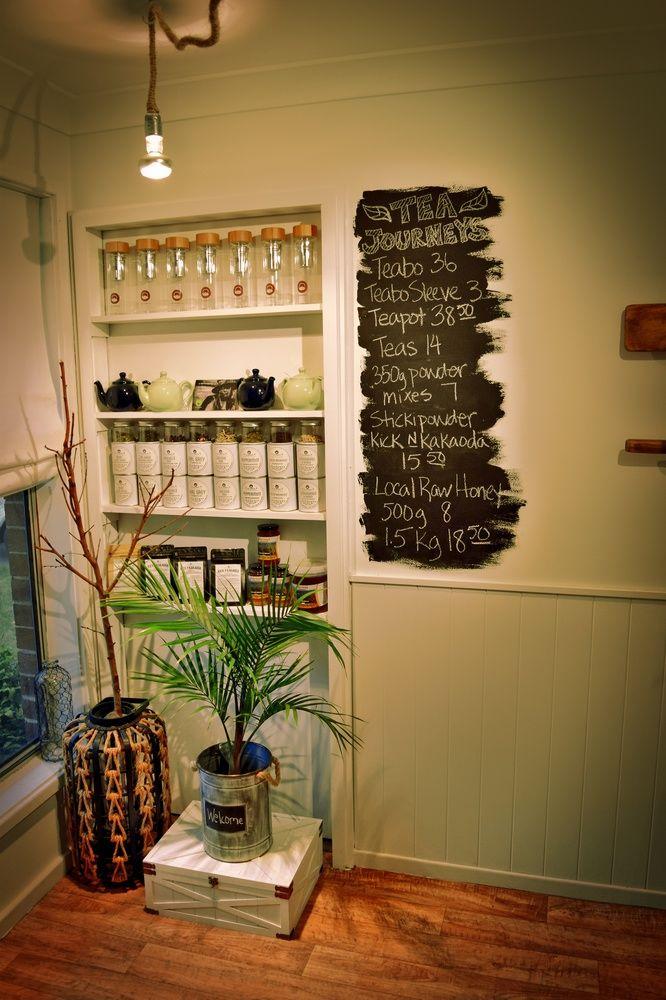 TEA
JOURNEYS
Teabo 36
Teabo Sleeve 3
Teapot 38 50
Teas 14
350g powder
mixes 7
Sticki powder
Kick N Kakaoda
15 50
Local Raw Honey
500g 8
1.5 Kg 18 50
Welcome